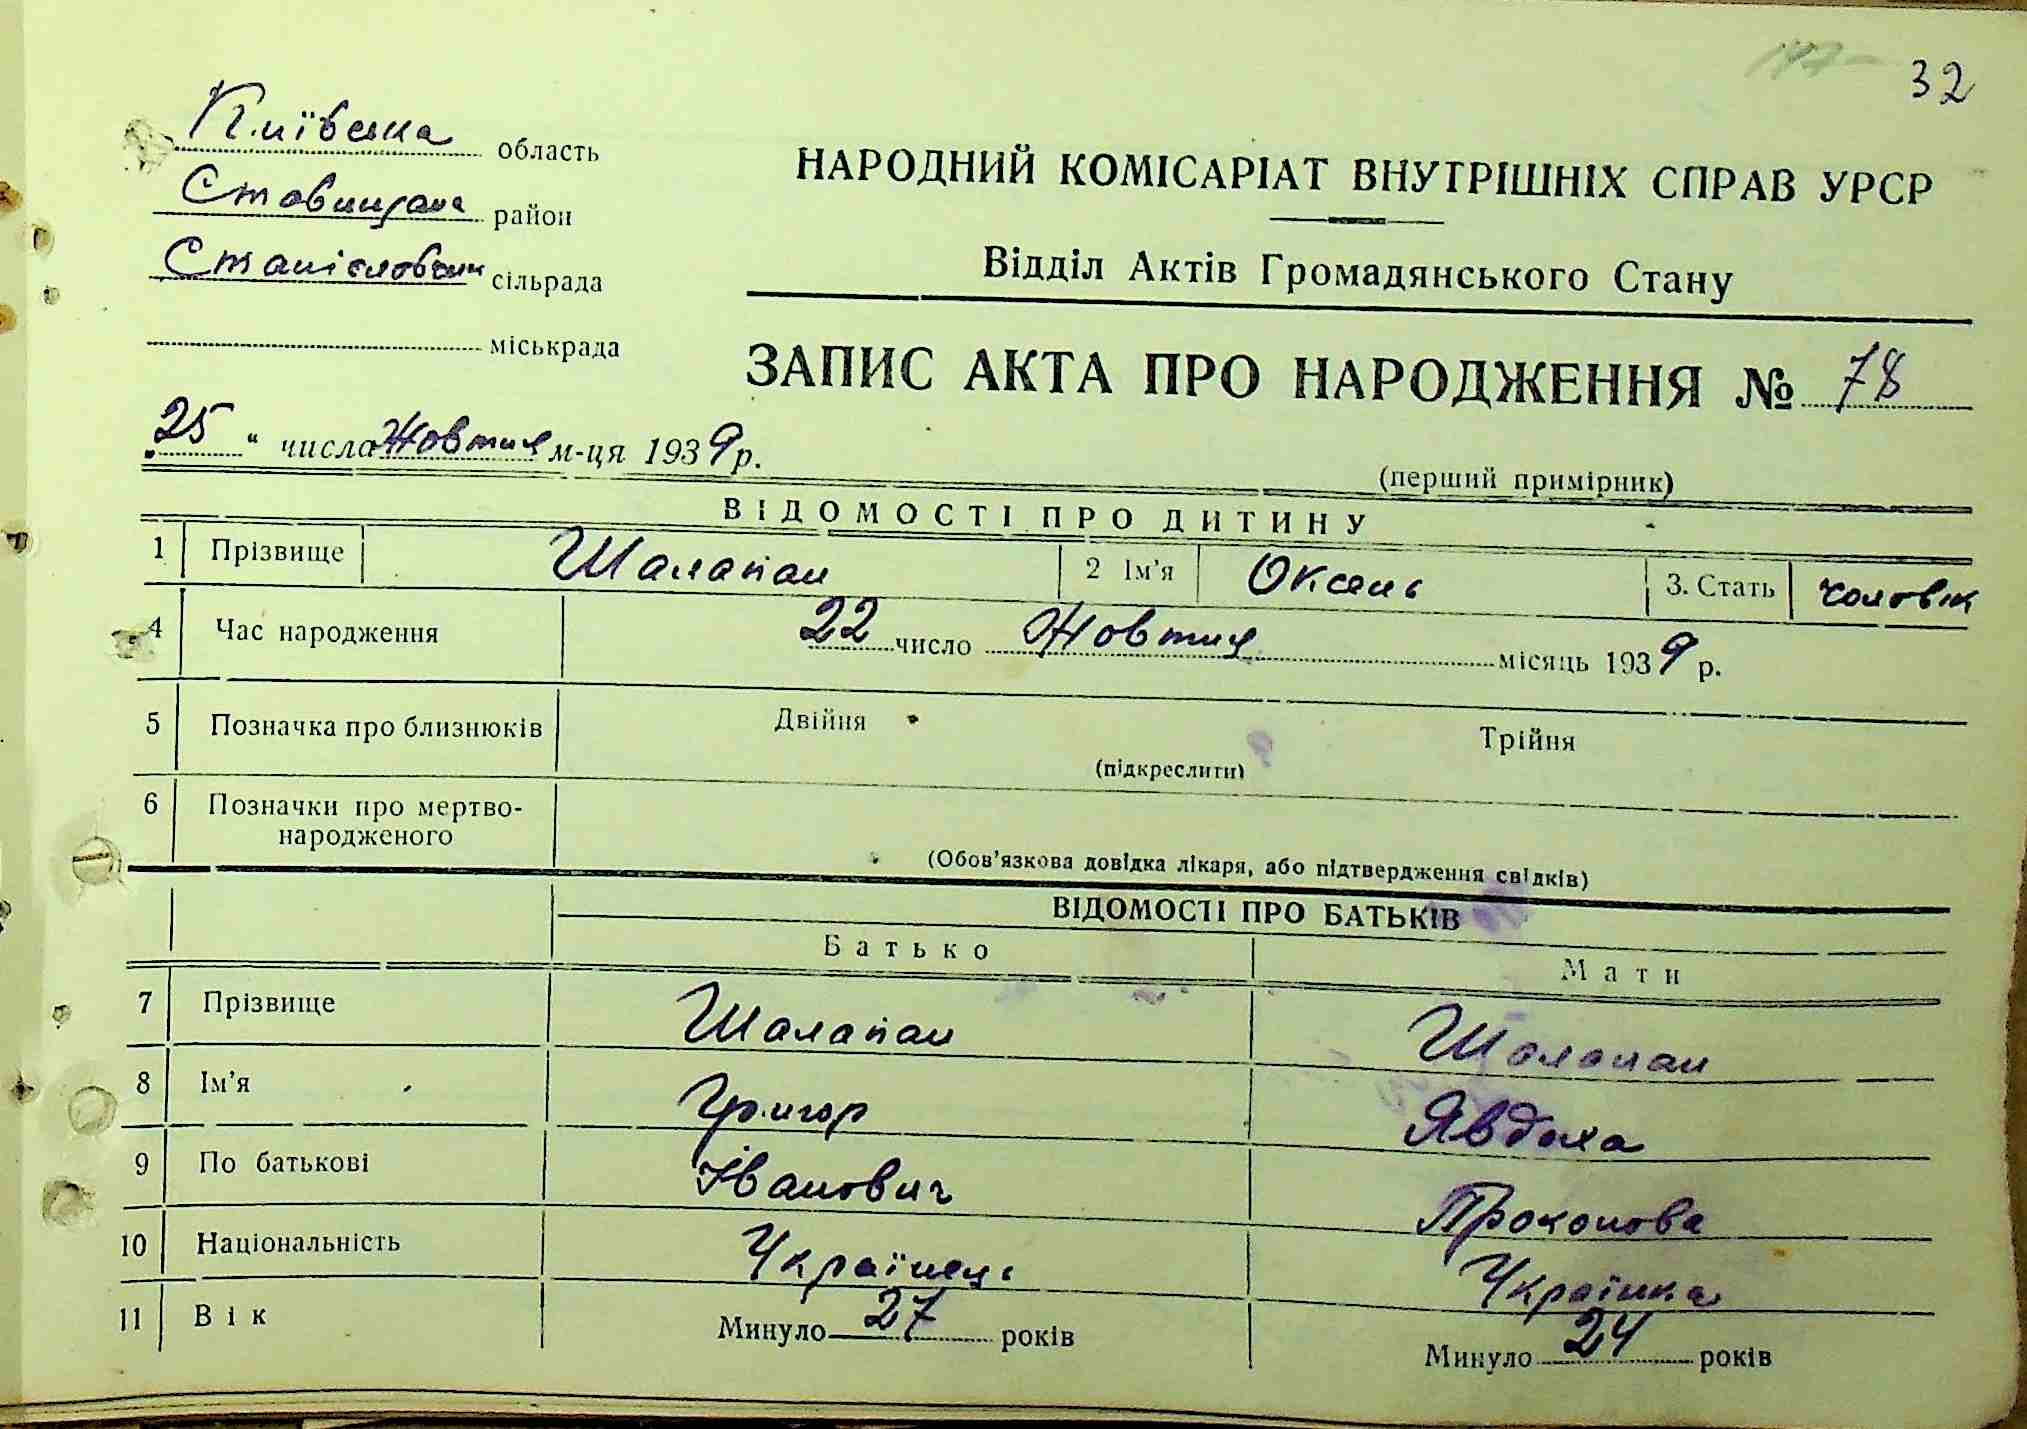 32
Київська область
Ставищан район
Станіславчик сільрада
міськрада
НАРОДНИЙ КОМІСАРІАТ ВНУТРІШНІХ СПРАВ УРСР
Відділ Актів Громадянського Стану
ЗАПИС АКТА ПРО НАРОДЖЕННЯ № 78
„25“ числа Жовтня м-ця 1939 р.
(перший примірник)
ВІДОМОСТІ ПРО ДИТИНУ
1 Прізвище Шалапан 2 Ім'я Оксень 3. Стать чоловік
4 Час народження 22 число Жовтня місяць 1939 р.
5 Позначка про близнюків Двійня Трійня
(підкреслити)
6 Позначки про мертво-
народженого
(Обов'язкова довідка лікаря, або підтвердження свідків)
ВІДОМОСТІ ПРО БАТЬКІВ
Батько Мати
7 Прізвище Шалапан Шалапан
8 Ім'я Григор Явдоха
9 По батькові Іванович Прокопова
10 Національність Українець Українка
11 Вік Минуло 27 років Минуло 24 років